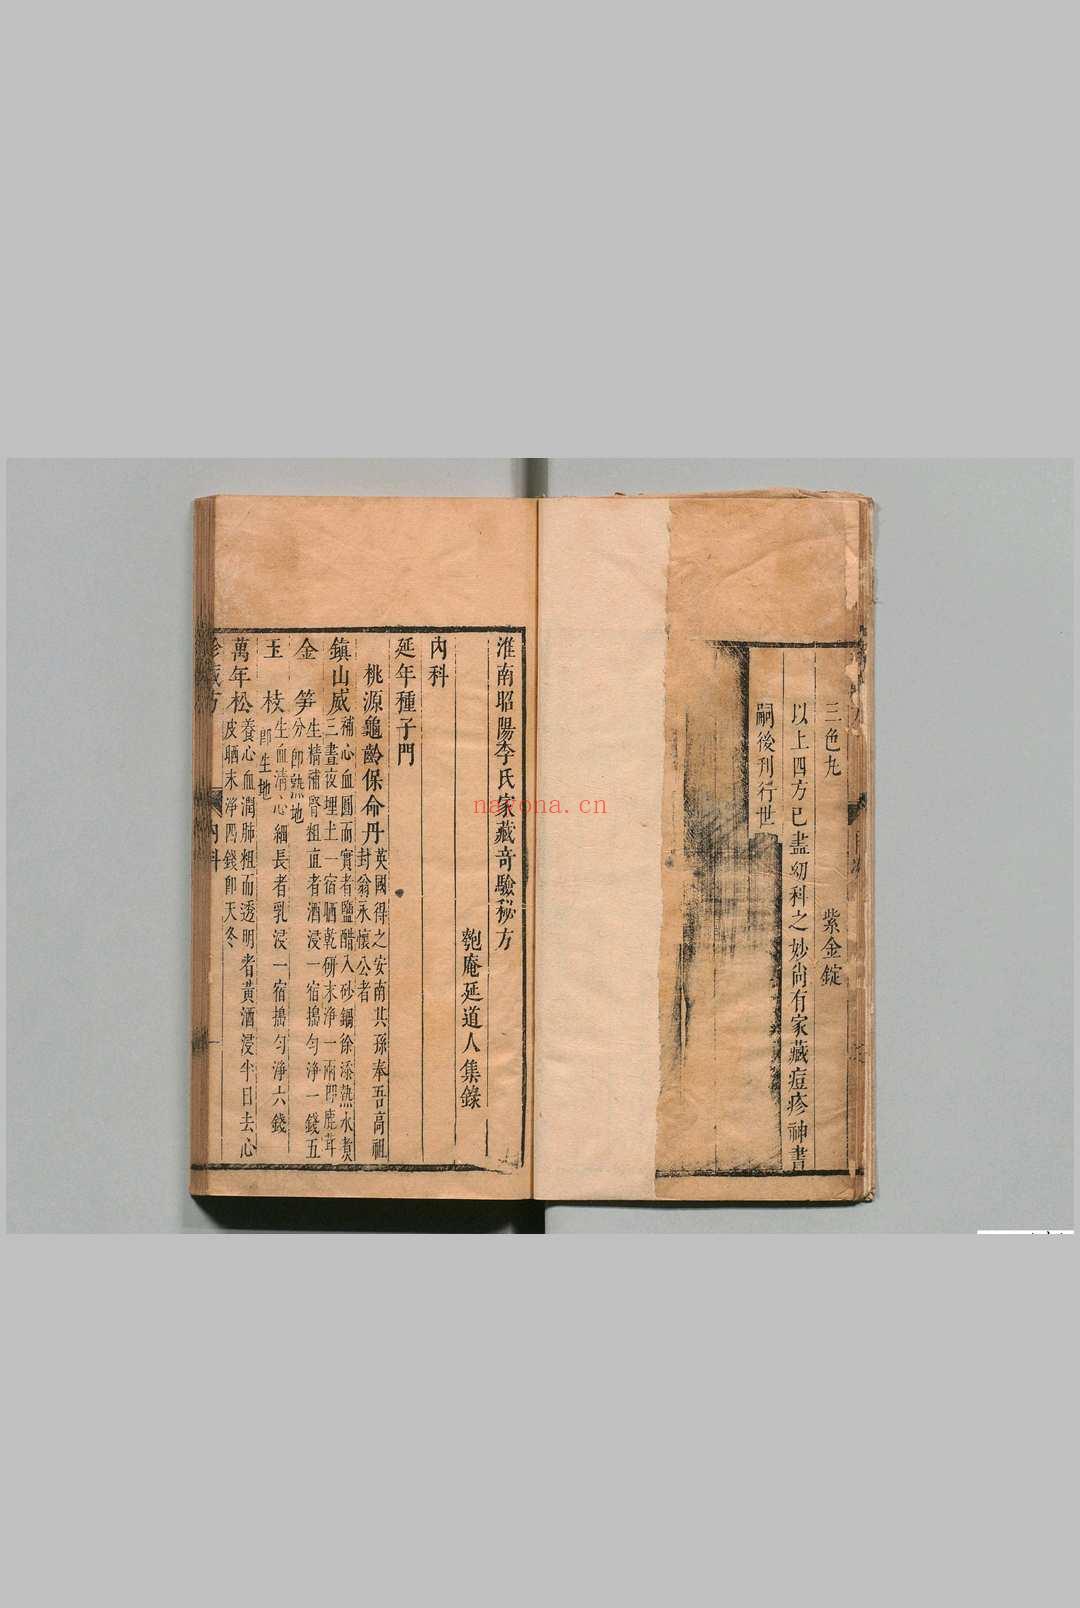 三色丸　紫金錠
以上四方已盡幼科之妙尚有家藏痘疹神書
嗣後刊行世
淮南昭陽李氏家藏奇驗秘方
匏庵延道人集錄
內科
延年種子門
桃源龜齡保命丹英國得之安南其孫奉吾高祖
封翁永懷公者
鎮山威補心血圓而實者鹽醋入砂鍋徐添熱水煑
三晝夜埋土一宿晒乾研末淨一兩即鹿茸
金笋生精補腎粗直者酒浸一宿搗勻淨一錢五
分即熟地
玉枝生血清心細長者乳浸一宿搗勻淨六錢
即生地
萬年松養心血潤肺粗而透明者黃酒浸半日去心
皮晒末淨四錢即天冬
珍藏方　內科
nayona.cn